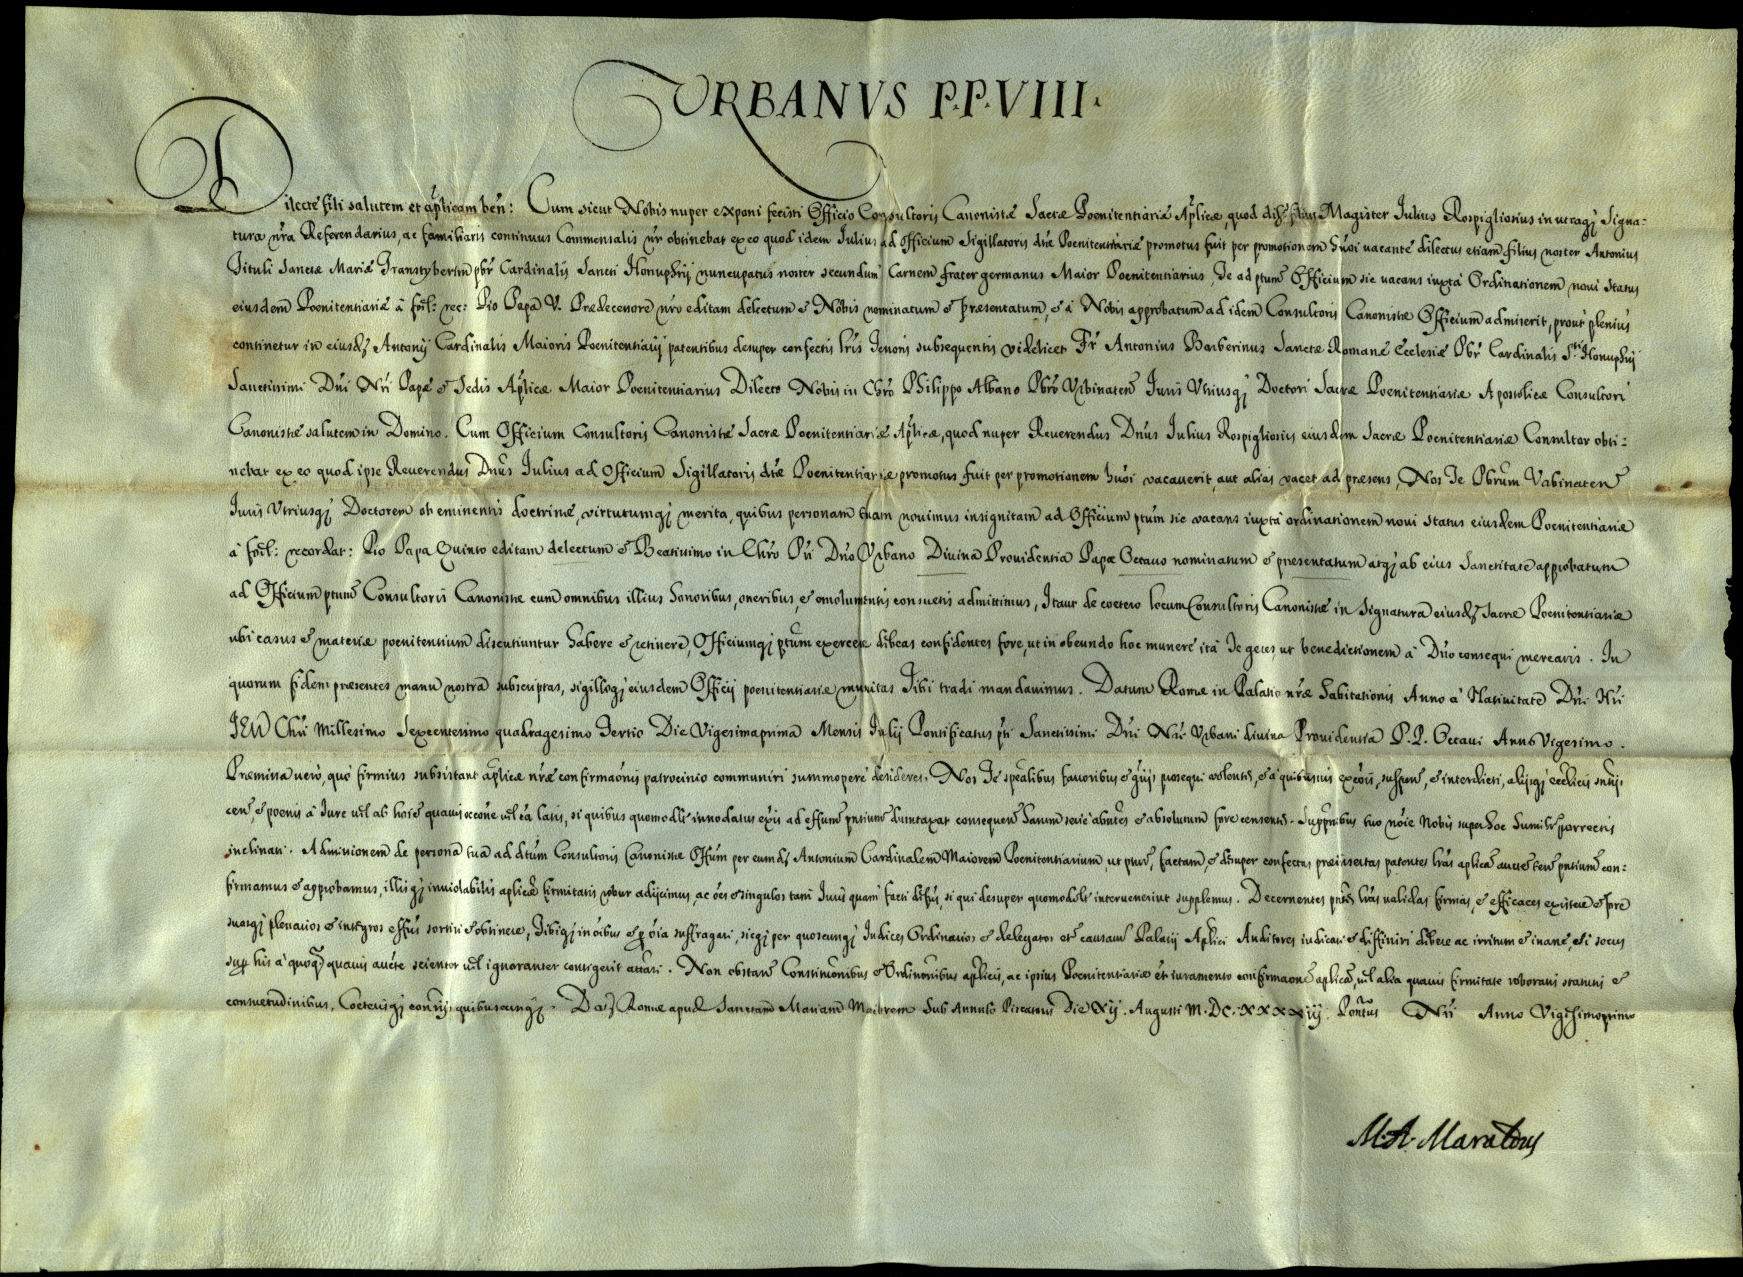 URBANVS P.P. VIII.
Dilecte fili salutem et aplicam ben: Cum sicut Nobis nuper exponi fecisti Officio Consultoris Canonistæ Sacræ Poenitentiariæ Aplicæ, quod dil. filius Magister Iulius Rospigliosius in utraq; Signa-
tura nra Referendarius, ac familiaris continuus Commensalis nr obtinebat ex eo quod idem Iulius ad officium Sigillatoris dtæ Poenitentiariæ promotus fuit per promotionem huoi vacante dilectus etiam filius noster Antonius
Tituli Sanctæ Mariæ Transtyberim pbr Cardinalis Sancti Honuphrij nuncupatus noster secundum Carnem frater germanus Maior Poenitentiarius, Te ad ptum Officium sic vacans iuxta Ordinationem novi status
eiusdem Poenitentiariæ à foel: rec: Pio Papa V. Prædecessore nro editam delectum & Nobis nominatum & præsentatum, & à Nobis approbatum ad idem Consultoris Canonistæ Officium admiserit, prout plenius
continetur in eiusd; Antonij Cardinalis Maioris Poenitentiarij patentibus desuper confectis lris Tenoris subsequentis videlicet Fr Antonius Barberinus Sanctæ Romanæ Ecclesiæ Pbr Cardinalis Sti Honuphrij
Sanctissimi Dni Nri Papæ & Sedis Aplicæ Maior Poenitentiarius Dilecto Nobis in Chro Philippo Albano Pbro Urbinaten Iuris Utriusq; Doctori Sacræ Poenitentiariæ Apostolicæ Consultori
Canonistæ salutem in Domino. Cum Officium Consultoris Canonistæ Sacræ Poenitentiariæ Aplicæ, quod nuper Reverendus Dnus Iulius Rospigliosius eiusdem Sacræ Poenitentiariæ Consultor obti-
nebat ex eo quod ipse Reverendus Dnus Iulius ad Officium Sigillatoris dtæ Poenitentiariæ promotus fuit per promotionem huoi vacaverit, aut alias vacet ad præsens, Nos Te Pbrum Urbinaten
Iuris Utriusq; Doctorem ob eminentis doctrinæ, virtutumq; merita, quibus personam tuam novimus insignitam ad Officium ptum sic vacans iuxta ordinationem novi status eiusdem Poenitentiariæ
à foel: recordat: Pio Papa Quinto editam delectum & Beatissimo in Chro Pri Dno Urbano Divina Providentia Papæ Octavo nominatum & præsentatum atq; ab eius Sanctitate approbatum
ad Officium ptum Consultoris Canonistæ cum omnibus illius honoribus, oneribus, & emolumentis consuetis admittimus, Itaut de coetero locum Consultoris Canonistæ in signatura eiusd; Sacræ Poenitentiariæ
ubi casus & materiæ poenitentium discutiuntur habere & retinere, Officiumq; ptum exercere debeas confidentes fore, ut in obeundo hoc munere ità Te geres, ut benedictionem à Dno consequi merearis. In
quorum fidem præsentes manu nostra subscriptas, sigilloq; eiusdem Officij poenitentiariæ munitas Tibi tradi mandavimus. Datum Romæ in Palatio nræ habitationis Anno à Nativitate Dni Nri
IESU Chri Millesimo Sexcentesimo quadragesimo Tertio Die Vigesimaprima Mensis Iulij Pontificatus pti Sanctissimi Dni Nri Urbani divina Providentia P.P. Octavi Anno Vigesimo.
Præmissa vero, quò firmius subsistant aplicæ nræ confirmaonis patrocinio communiri summoperè desideres. Nos Te spealibus favoribus & grijs prosequi volentes, & à quibusvis excois, suspens, & interdicti, alijsq; ecclicis sntijs
cen, & poenis à Iure vel ab hoie quavis occone vel ca latis, si quibus quomodlt innodatus exis ad effum pntium dumtaxat consequen harum serie absntes & absolutum fore censentes. Supptnibus tuo noie Nobis super hoc humilr porrectis
inclinati. Admissionem de persona tua ad dtum Consultoris Canonistæ Offium per eumd; Antonium Cardinalem Maiorem Poenitentiarium, ut ptur, factam, & desuper confectas præinsertas patentes lras aplica aucte teno pntium con-
firmamus & approbamus, illisq; inviolabilis aplicæ firmitatis robur adijcimus, ac oes & singulos tam Iuris quam facti defus, si qui desuper quomodolt intervenerint supplemus. Decernentes pntes lras validas firmas, & efficaces existere & fore
suosq; plenarios & integros effus sortiri & obtinere, Tibiq; in oibus & p oia suffragari, sicq; per quoscunq; Iudices Ordinarios & delegatos et causarum Palatij Aplici Auditores iudicari & diffiniri debere ac irritum & inane, si secus
sup his à quoq; quavis aucte scienter vel ignoranter contigerit attari. Non obstan Constitnonibus & Ordinonibus aplicis, ac ipsius Poenitentiariæ et iuramento confirmaone aplica, vel alia quavis firmitate roboratis statutis &
consuetudinibus, Coeterisq; conrijs quibuscunq;. Dat; Romæ apud Sanctam Mariam Maiorem Sub Annulo Piscatoris Die Xij. Augusti M.DC.XXXXiij. Pontus Nri Anno Vigesimoprimo
M.A. Maraldus